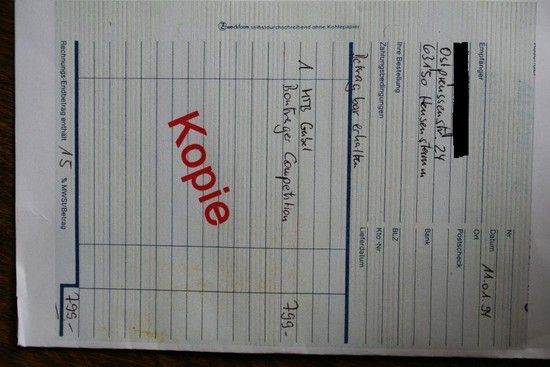 Nr.
Datum 11.01.94
Ort
Empfänger
Ostpreussenstr 24
63150 Heusenstamm
Postscheck
Bank
BLZ
Kto-Nr.
Lieferdatum
Ihre Bestellung
Zahlungsbedingungen
Betrag bar erhalten
1 MTB Gabel
Bontrager Competition 799,-
Kopie
Rechnungs-Endbetrag enthält 15 % MWSt/Betrag 799,-
Zweckform selbstdurchschreibend ohne Kohlepapier